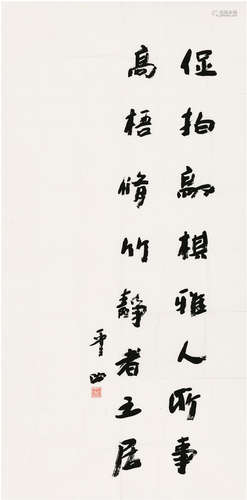 促拍敲棋雅人所事
高梧脩竹靜者之居